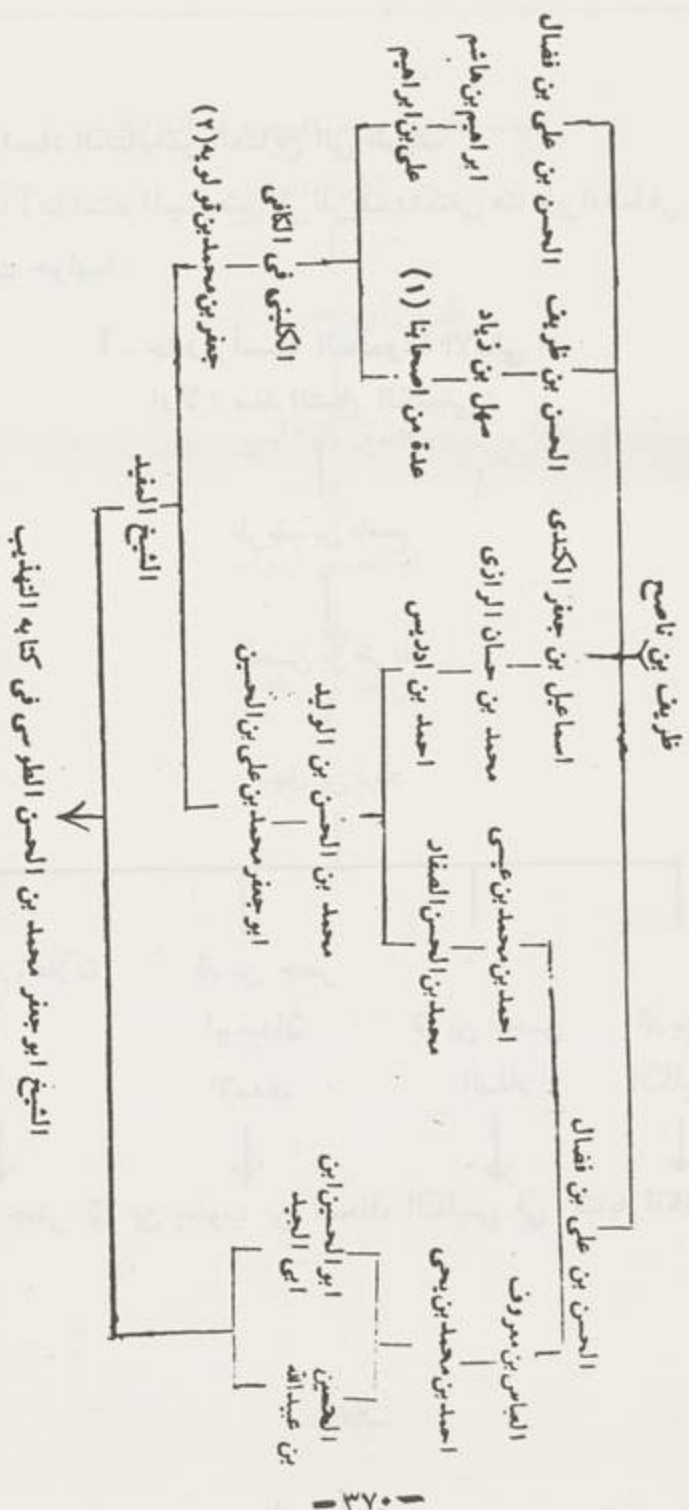 ظريف بن ناصح
الحسن بن على بن فضال
الحسن بن ظريف
اسماعيل بن جعفر الكندى
الحسن بن على بن فضال
ابراهيم بن هاشم
سهل بن زياد
محمد بن حسان الرازى
احمد بن محمد بن عيسى
العباس بن معروف
على بن ابراهيم
عدة من اصحابنا (١)
احمد بن ادريس
محمد بن الحسن الصفار
احمد بن محمد بن يحى
الكلينى فى الكافى
محمد بن الحسن بن الوليد
ابو الحسين ابن
ابى الجيد
الحسين
بن عبيدالله
جعفر بن محمد بن قولويه (٢)
ابو جعفر محمد بن على بن الحسين
الشيخ المفيد
الشيخ ابو جعفر محمد بن الحسن الطوسى فى كتابه التهذيب
٣٧٠